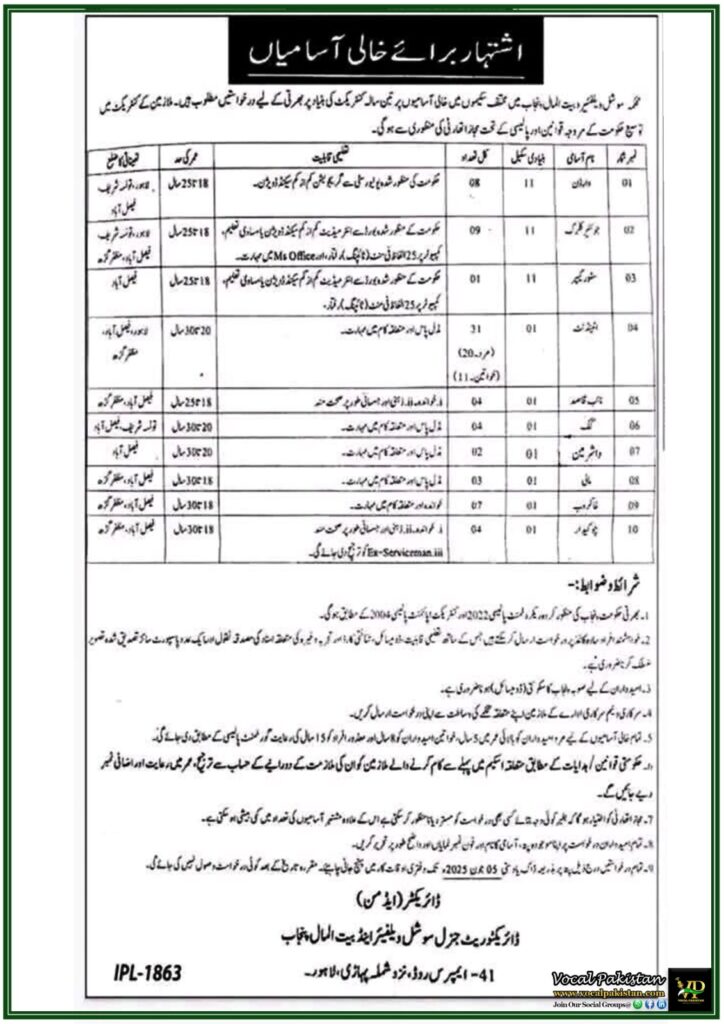 اشتہار برائے خالی آسامیاں
محکمہ سوشل ویلفیئر و بیت المال، پنجاب میں مختلف سکیموں میں خالی آسامیوں پر تین سالہ کنٹریکٹ کی بنیاد پر بھرتی کے لیے درخواستیں مطلوب ہیں۔ ملازمین کے کنٹریکٹ میں
توسیع حکومت کے مروجہ قوانین اور پالیسی کے تحت مجاز اتھارٹی کی منظوری سے ہو گی۔
نمبر شمار نام آسامی بنیادی سکیل کل تعداد تعلیمی قابلیت عمر کی حد تعیناتی کا ضلع
01 وارڈن 11 08 حکومت کی منظور شدہ یونیورسٹی سے گریجویشن کم از کم سیکنڈ ڈویژن۔ 18 تا 25 سال لاہور، تونسہ شریف
فیصل آباد
02 جونیئر کلرک 11 09 حکومت کے منظور شدہ بورڈ سے انٹرمیڈیٹ کم از کم سیکنڈ ڈویژن یا مساوی تعلیم، 18 تا 25 سال لاہور، تونسہ شریف
کمپیوٹر پر 25 الفاظ فی منٹ (ٹائپنگ) رفتار، اور Ms Office میں مہارت۔ فیصل آباد، مظفر گڑھ
03 سٹور کیپر 11 01 حکومت کے منظور شدہ بورڈ سے انٹرمیڈیٹ کم از کم سیکنڈ ڈویژن یا مساوی تعلیم، 18 تا 25 سال فیصل آباد
کمپیوٹر پر 25 الفاظ فی منٹ (ٹائپنگ) رفتار۔
04 اٹینڈنٹ 01 31 مڈل پاس اور متعلقہ کام میں مہارت۔ 20 تا 30 سال لاہور، فیصل آباد،
(مرد۔20) مظفر گڑھ
(خواتین۔11)
05 نائب قاصد 01 04 i. خواندہ۔ ii. ذہنی اور جسمانی طور پر صحت مند 18 تا 25 سال فیصل آباد، مظفر گڑھ
06 کک 01 04 مڈل پاس اور متعلقہ کام میں مہارت۔ 20 تا 30 سال تونسہ شریف، فیصل آباد
07 واشر مین 01 02 مڈل پاس اور متعلقہ کام میں مہارت۔ 20 تا 30 سال فیصل آباد
08 مالی 01 03 مڈل پاس اور متعلقہ کام میں مہارت۔ 18 تا 30 سال فیصل آباد، مظفر گڑھ
09 خاکروب 01 07 خواندہ اور متعلقہ کام میں مہارت۔ 18 تا 30 سال فیصل آباد، مظفر گڑھ
10 چوکیدار 01 04 i. خواندہ۔ ii. ذہنی اور جسمانی طور پر صحت مند 18 تا 30 سال فیصل آباد، مظفر گڑھ
iii. Ex-Serviceman کو ترجیح دی جائے گی۔
شرائط و ضوابط:-
1۔ بھرتی حکومت پنجاب کی منظور کردہ ریکروٹمنٹ پالیسی 2022 اور کنٹریکٹ اپائنٹمنٹ پالیسی 2004 کے مطابق ہو گی۔
2۔ خواہشمند افراد سادہ کاغذ پر درخواست ارسال کر سکتے ہیں جس کے ساتھ تعلیمی قابلیت، ڈومیسائل، شناختی کارڈ اور تجربہ وغیرہ کی متعلقہ اسناد کی مصدقہ نقول اور ایک عدد پاسپورٹ سائز تصدیق شدہ تصویر
منسلک کرنا ضروری ہے۔
3۔ امیدواران کے لیے صوبہ پنجاب کا سکونتی (ڈومیسائل) ہونا ضروری ہے۔
4۔ سرکاری و نیم سرکاری ادارے کے ملازمین اپنے متعلقہ محکمے کی وساطت سے اپنی درخواست ارسال کریں۔
5۔ تمام خالی آسامیوں کے لیے مرد امیدواران کو بالائی عمر میں 5 سال، خواتین امیدواران کو 8 سال اور معذور افراد کو 15 سال کی رعایت گورنمنٹ پالیسی کے مطابق دی جائے گی۔
حکومتی قوانین / ہدایات کے مطابق متعلقہ اسکیم میں پہلے سے کام کرنے والے ملازمین کو ان کی ملازمت کے دورانیے کے حساب سے ترجیح، عمر میں رعایت اور اضافی نمبر
دیے جائیں گے۔
7۔ مجاز اتھارٹی کو اختیار ہو گا کہ بغیر کوئی وجہ بتائے کسی بھی درخواست کو مسترد یا نامنظور کر سکتی ہے اس کے علاوہ مشتہر آسامیوں کی تعداد میں کمی بیشی ہو سکتی ہے۔
8۔ تمام امیدواران درخواست پر اپنا موجودہ پتہ، آسامی کا نام اور فون نمبر نمایاں اور واضح طور پر تحریر کریں۔
9۔ تمام درخواستیں درج ذیل پتہ پر بذریعہ ڈاک یا دستی 05 جون 2025ء تک دفتری اوقات کار میں پہنچ جانی چاہیئے۔ مقررہ تاریخ کے بعد کوئی درخواست وصول نہیں کی جائے گی۔
ڈائریکٹر (ایڈمن)
ڈائریکٹوریٹ جنرل سوشل ویلفیئر اینڈ بیت المال پنجاب
41- ایمپرس روڈ، نزد شملہ پہاڑی، لاہور۔
IPL-1863
Vocal Pakistan
www.vocalpakistan.com
Join Our Social Groups@
VP
VOCAL PAKISTAN